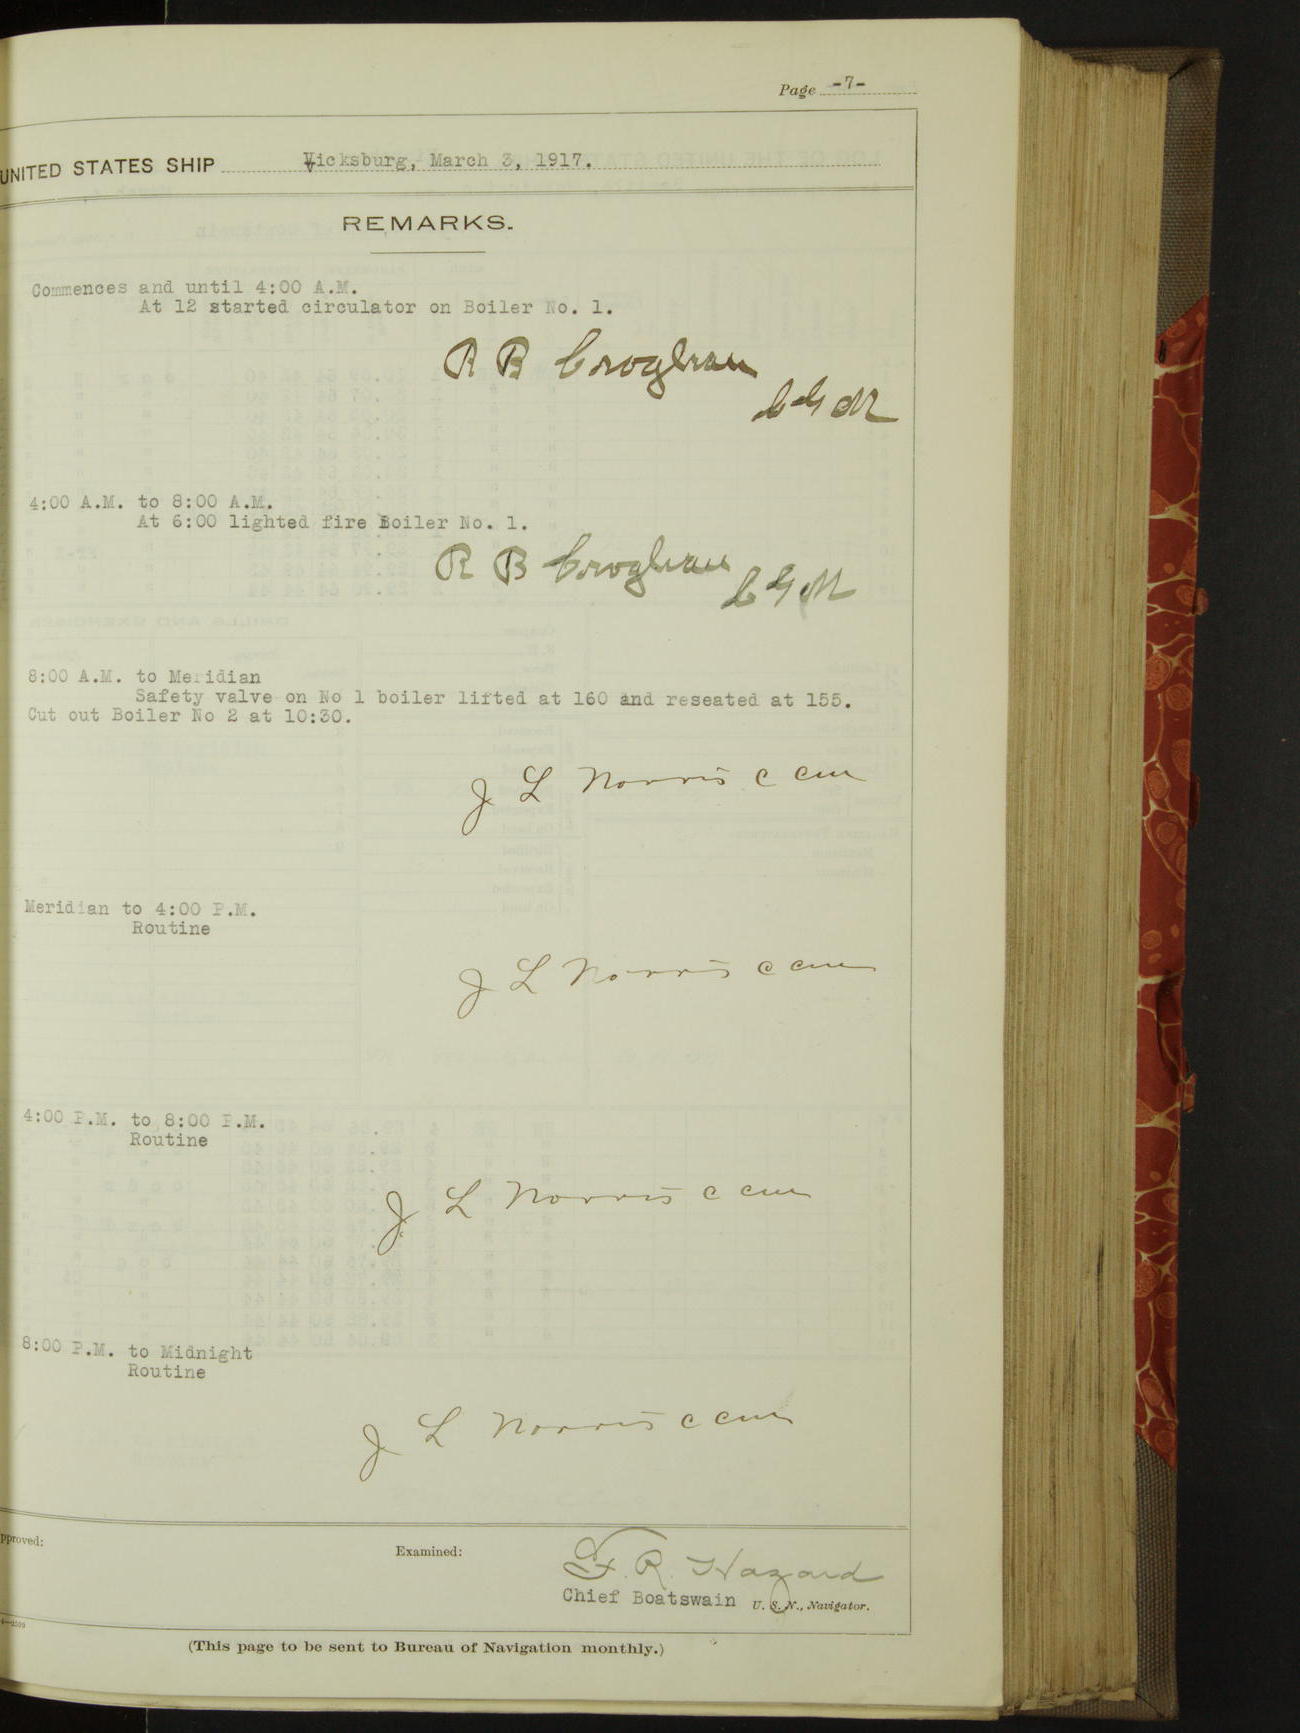 Page -7-
UNITED STATES SHIP Vicksburg, March 3, 1917.
REMARKS.
Commences and until 4:00 A.M.
At 12 started circulator on Boiler No. 1.
R B Croghan
C G M
4:00 A.M. to 8:00 A.M.
At 6:00 lighted fire Boiler No. 1.
R B Croghan C G M
8:00 A.M. to Meridian
Safety valve on No 1 boiler lifted at 160 and reseated at 155.
Cut out Boiler No 2 at 10:30.
J L Norris C C M
Meridian to 4:00 P.M.
Routine
J L Norris C C M
4:00 P.M. to 8:00 P.M.
Routine
J L Norris C C M
8:00 P.M. to Midnight
Routine
J L Norris C C M
pproved:
Examined:
R. Hazard
Chief Boatswain U. S. N., Navigator.
(This page to be sent to Bureau of Navigation monthly.)